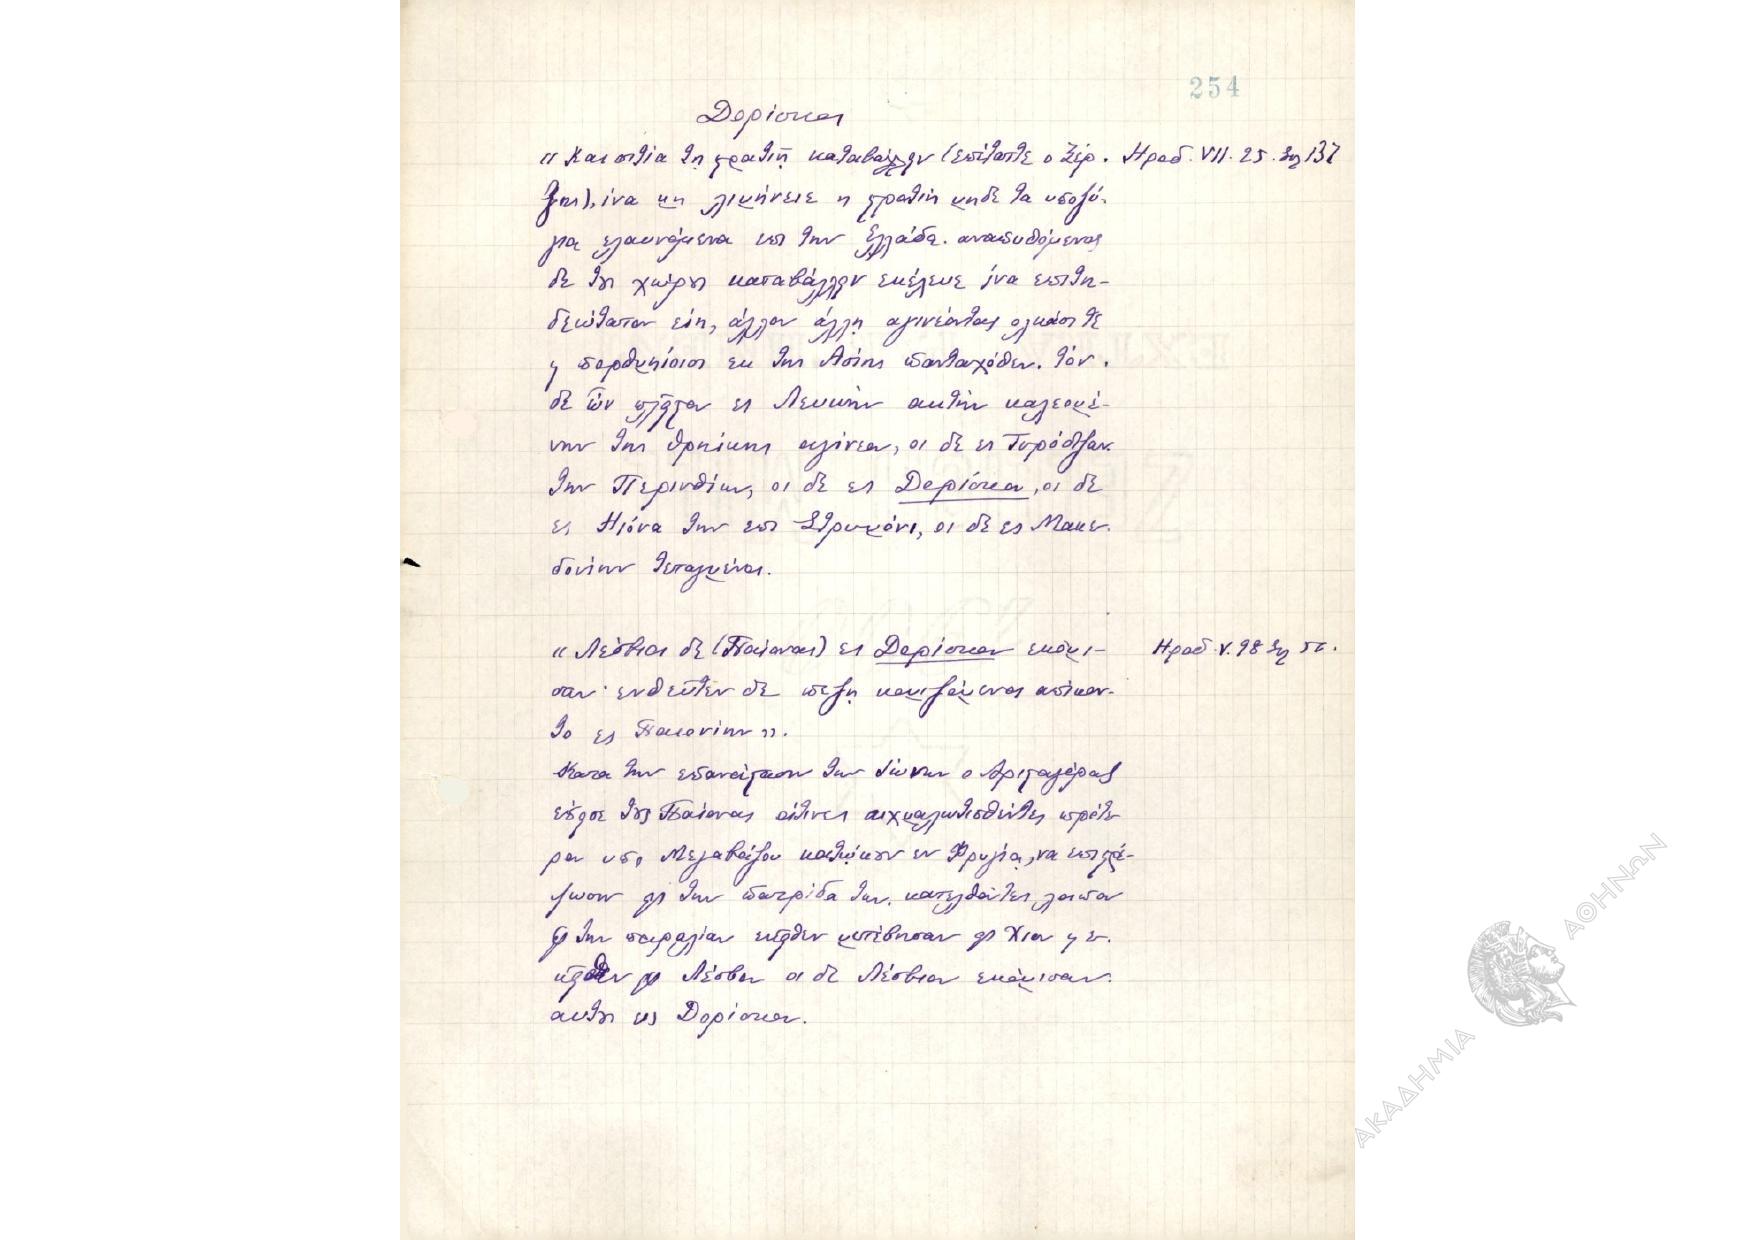 254
Δορίσκος
« Και σιτία τη στρατιῇ καταβάλλειν (επέτατε ο Ξέρ- Ηροδ. VII. 25. Σελ 137
ξης), ίνα μη λιμήνειε η στρατιή μηδέ τα υποζύ-
για ελαυνόμενα επί την Ελλάδα. αναπυθόμενος
δε τους χώρους καταβάλλειν εκέλευε ίνα επιτη-
δεώτατον είη, άλλον άλλη αγινέοντας ολκάσι τε
και πορθμηίοισι εκ της Ασίης πανταχόθεν. τον
δε ών πλείστον ες Λευκήν ακτήν καλεομέ-
νην της Θρηίκης αγίνεον, οι δε ες Τυρόδιζαν
την Περινθίων, οι δε ες Δορίσκον, οι δε
ες Ηιόνα την επί Στρυμόνι, οι δε ες Μακε-
δονίην τεταγμένοι.
« Λέσβιοι δε (Παίονας) ες Δορίσκον εκόμι- Ηροδ. V. 98 Σελ
σαν· ενθεύτεν δε πεζῇ κομιζόμενοι απίκον-
το ες Παιονίην ».
Κατά την επανάστασιν των Ιώνων ο Αρισταγόρας
έπεισε τους Παίονας οίτινες αιχμαλωτισθέντες πρότε-
ρον υπό Μεγαβάζου κατώκουν εν Φρυγία, να επιστρέ-
ψωσιν εις την πατρίδα των. κατελθόντες λοιπόν
εις την παραλίαν εκείθεν μετέβησαν εις Χίον και ε-
κείθεν εις Λέσβον οι δε Λέσβιοι εκόμισαν
αυτούς εις Δορίσκον.
ΑΚΑΔΗΜΙΑ ΑΘΗΝΩΝ